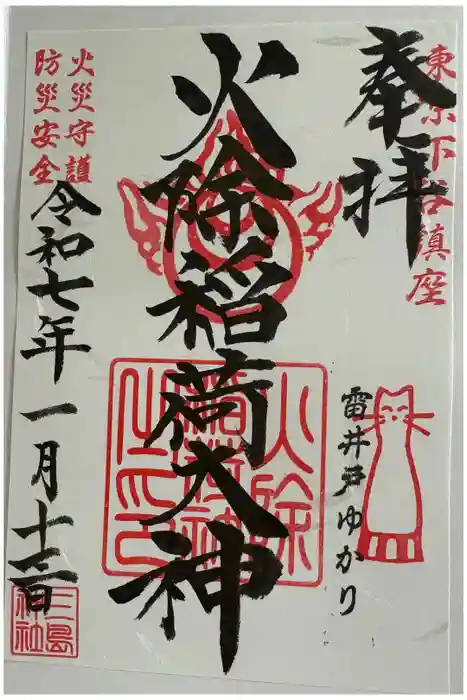 奉拝
東京下谷鎮座
雷井戸ゆかり
火除稲荷大神
火除
稲荷社神
之印
火災守護
防災安全
令和七年一月十三日
三島
神社